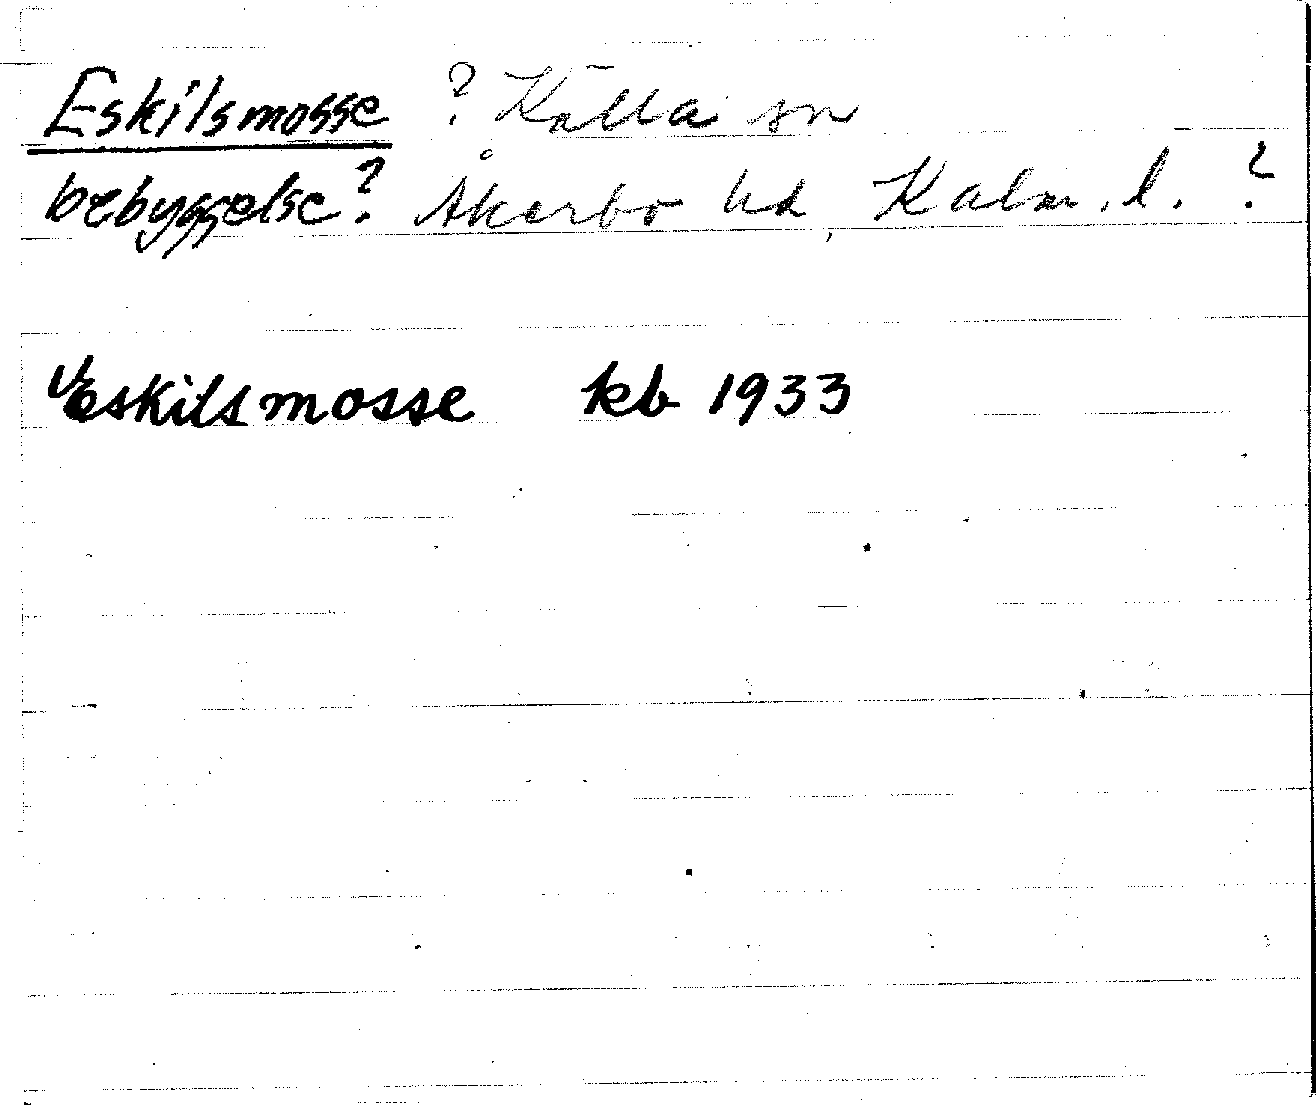 Eskilsmosse ? Källa sn
bebyggelse? Åkerbo hd, Kalm. l. ?
Eskilsmosse kb 1933